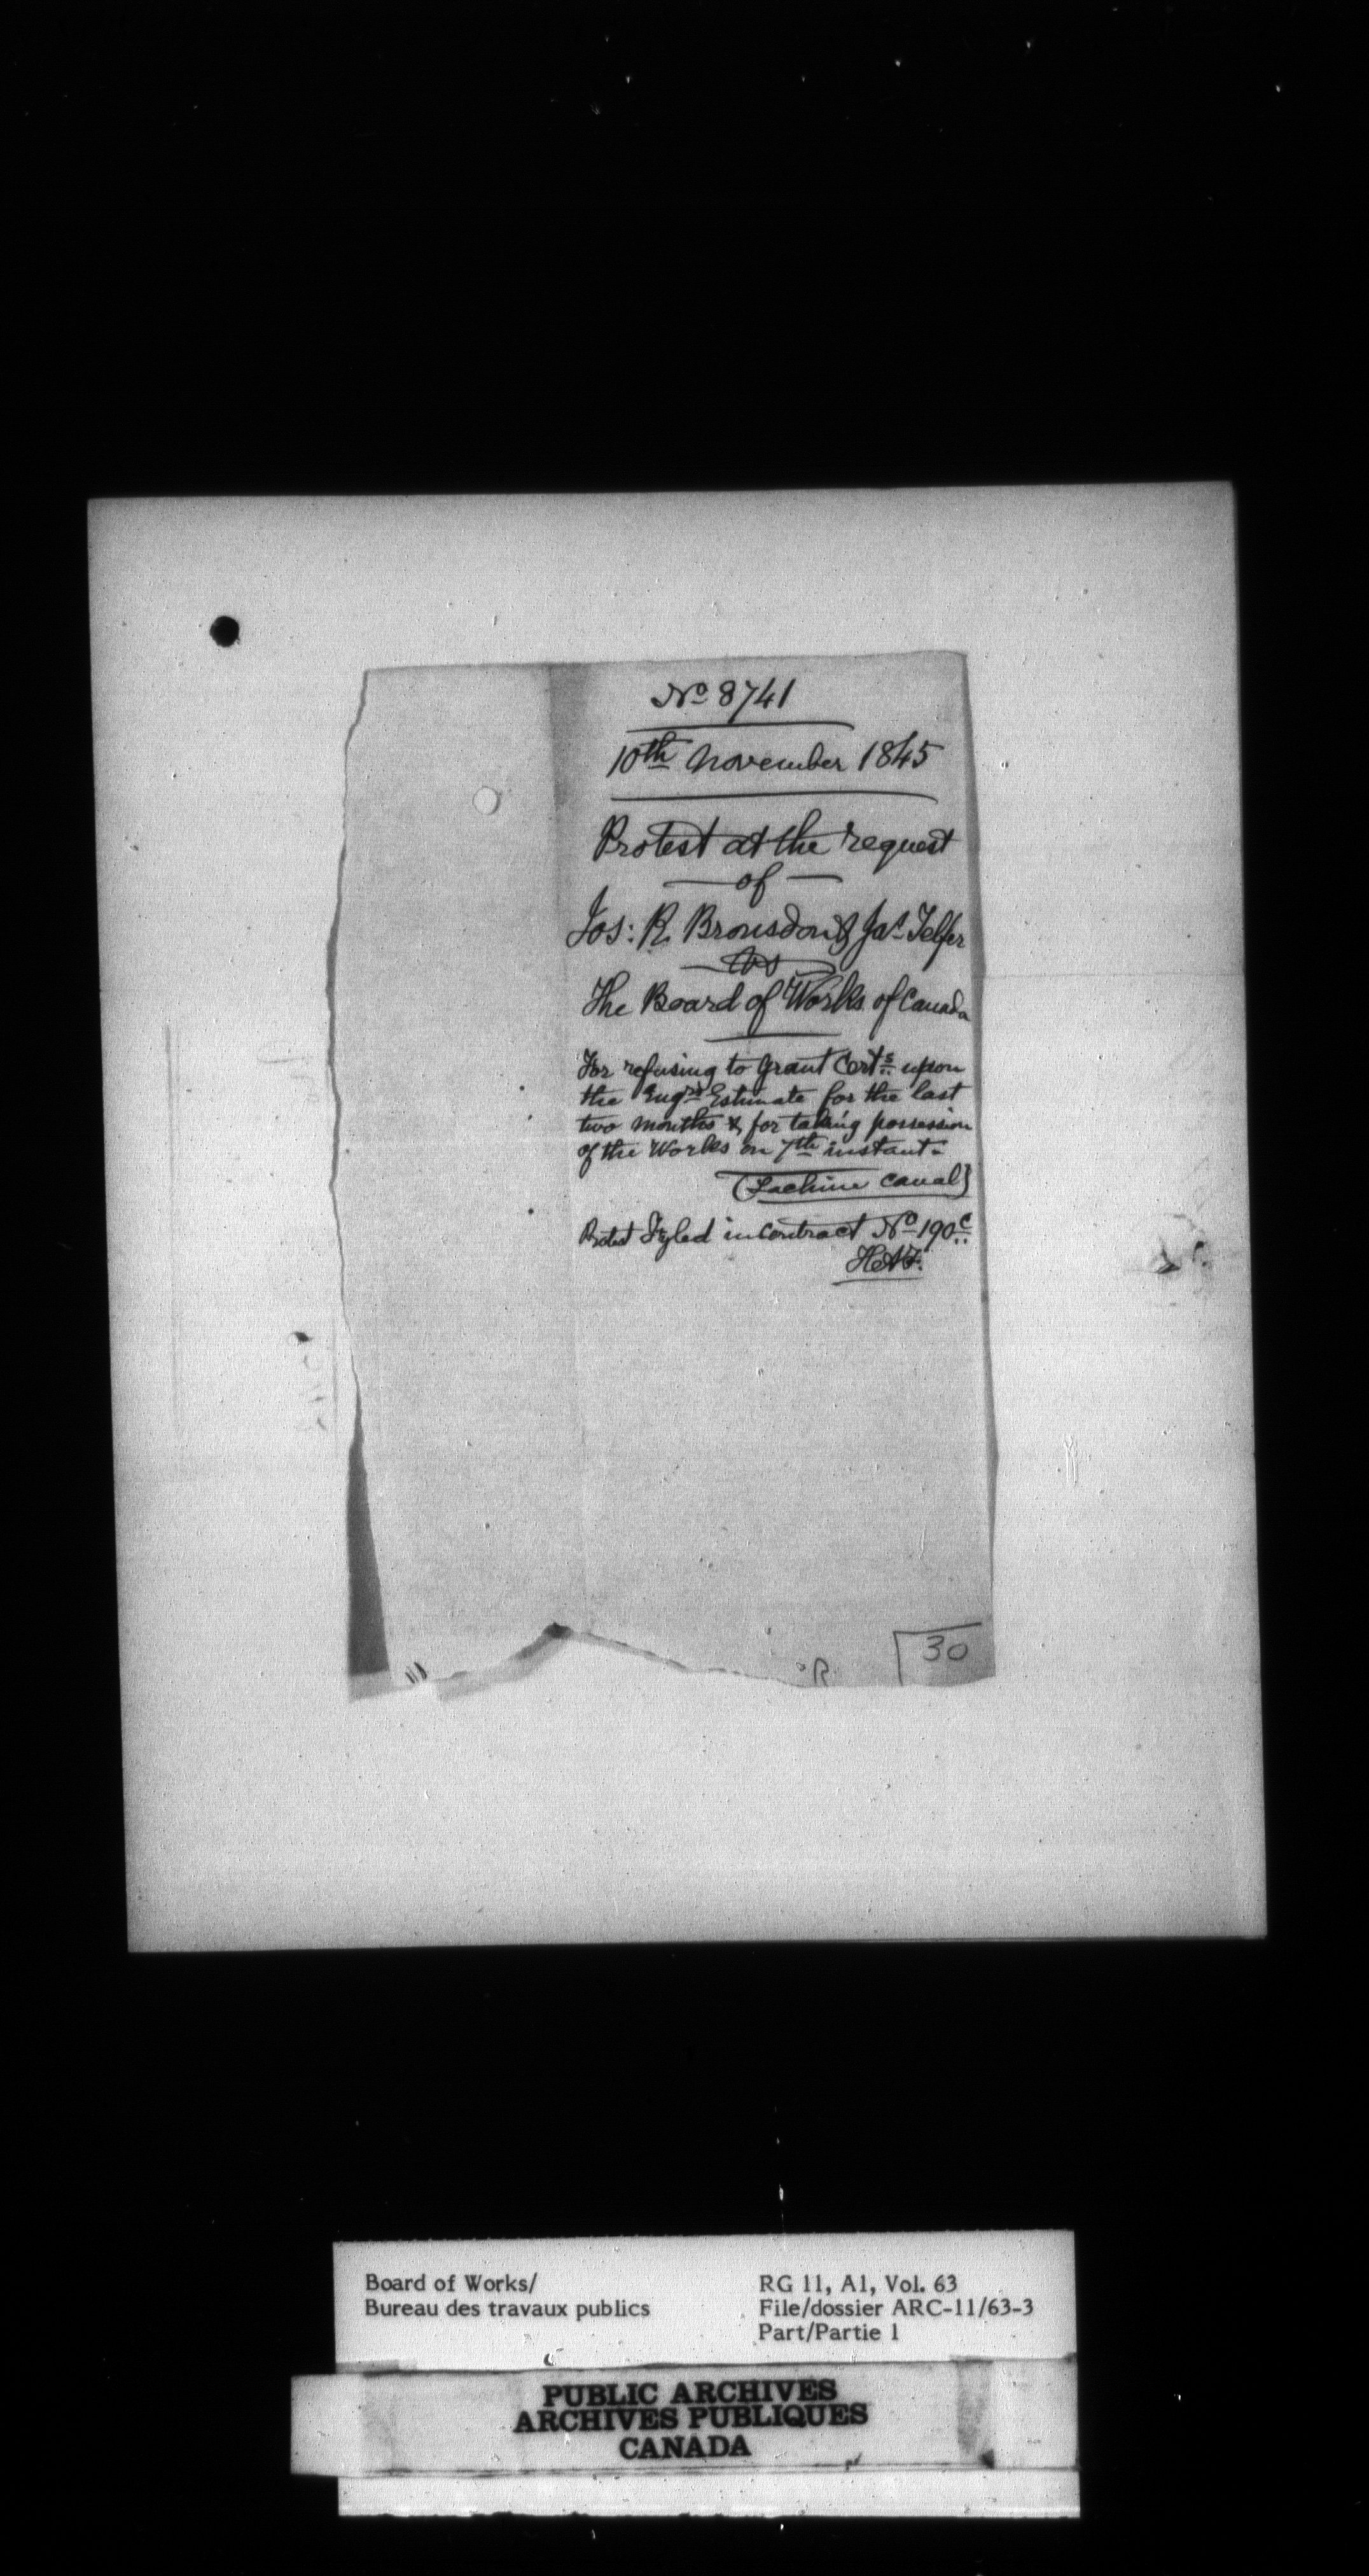 No 8741
10th November 1845
Protest at the request
of
Jos: R. Bronsdon & Jas Telfer
vs
The Board of Works of Canada
For refusing to grant Certs upon
the Engrs Estimate for the last
two months & for taking possession
of the Works on 7th instant-
(Lachine Canal)
Protest Fyled in Contract No 190c
30
Board of Works/
Bureau des travaux publics
RG 11, A1, Vol. 63
File/dossier ARC-11/63-3
Part/Partie 1
PUBLIC ARCHIVES
ARCHIVES PUBLIQUES
CANADA